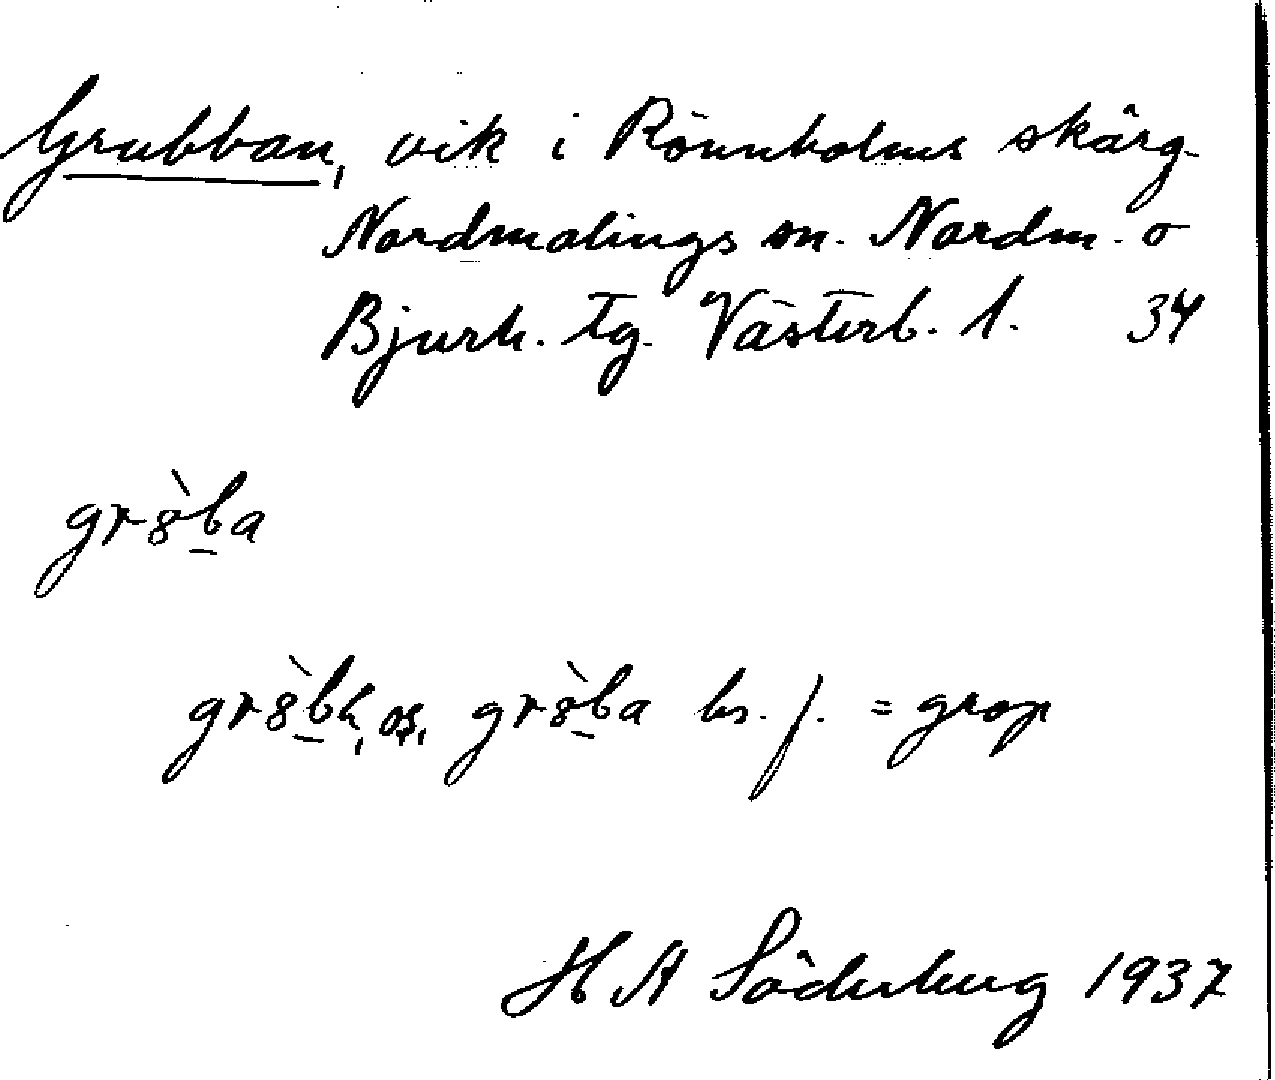 Grubban, vik i Rönnholms skärg.
Nordmalings sn. Nordm. o
Bjurh. tg. Västerb. l. 34
gr8̀b̲a
gr8̀b̲ gr8̀b̲a bs. f. = grop
H A Söderberg 1937